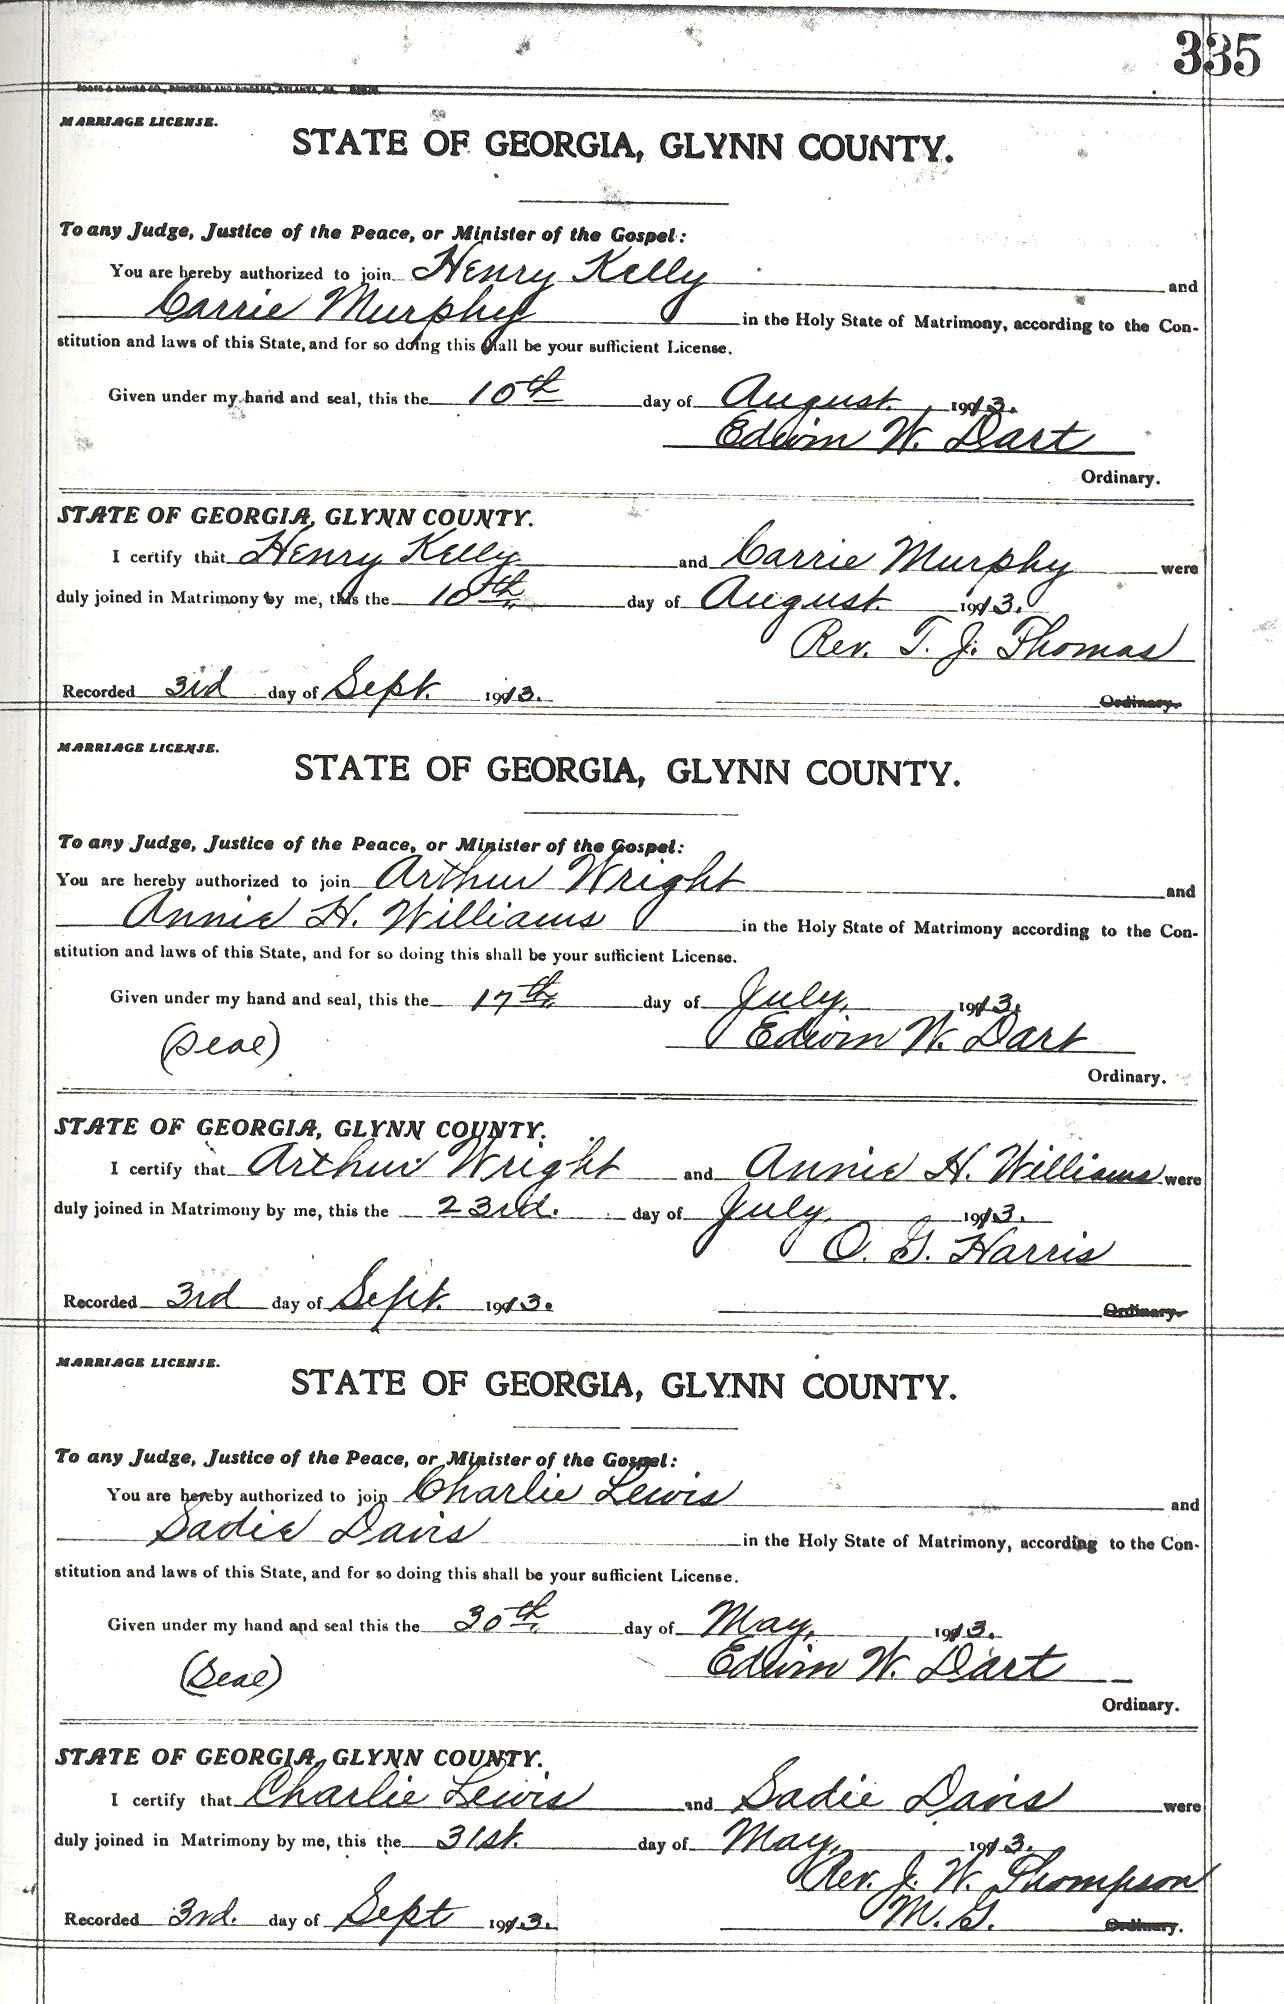 335
MARRIAGE LICENSE.
STATE OF GEORGIA, GLYNN COUNTY.
To any Judge, Justice of the Peace, or Minister of the Gospel:
You are hereby authorized to join Henry Kelly and
Carrie Murphy in the Holy State of Matrimony, according to the Con-
stitution and laws of this State, and for so doing this shall be your sufficient License.
Given under my hand and seal, this the 10th day of August. 1913.
Edwin W. Dart
Ordinary.
STATE OF GEORGIA, GLYNN COUNTY.
I certify that Henry Kelly and Carrie Murphy were
duly joined in Matrimony by me, this the 10th day of August. 1913.
Rev. T. J. Thomas
Recorded 3rd day of Sept. 1913. Ordinary.
MARRIAGE LICENSE.
STATE OF GEORGIA, GLYNN COUNTY.
To any Judge, Justice of the Peace, or Minister of the Gospel:
You are hereby authorized to join Arthur Wright and
Annie H. Williams in the Holy State of Matrimony according to the Con-
stitution and laws of this State, and for so doing this shall be your sufficient License.
Given under my hand and seal, this the 17th day of July, 1913.
(Seal) Edwin W. Dart
Ordinary.
STATE OF GEORGIA, GLYNN COUNTY.
I certify that Arthur Wright and Annie H. Williams were
duly joined in Matrimony by me, this the 23rd. day of July, 1913.
O. G. Harris
Recorded 3rd day of Sept. 1913. Ordinary.
MARRIAGE LICENSE.
STATE OF GEORGIA, GLYNN COUNTY.
To any Judge, Justice of the Peace, or Minister of the Gospel:
You are hereby authorized to join Charlie Lewis and
Sadie Davis in the Holy State of Matrimony, according to the Con-
stitution and laws of this State, and for so doing this shall be your sufficient License.
Given under my hand and seal this the 30th day of May, 1913.
(Seal) Edwin W. Dart
Ordinary.
STATE OF GEORGIA, GLYNN COUNTY.
I certify that Charlie Lewis and Sadie Davis were
duly joined in Matrimony by me, this the 31st. day of May, 1913.
Rev. J. W. Thompson
M. G.
Recorded 3rd. day of Sept 1913. Ordinary.